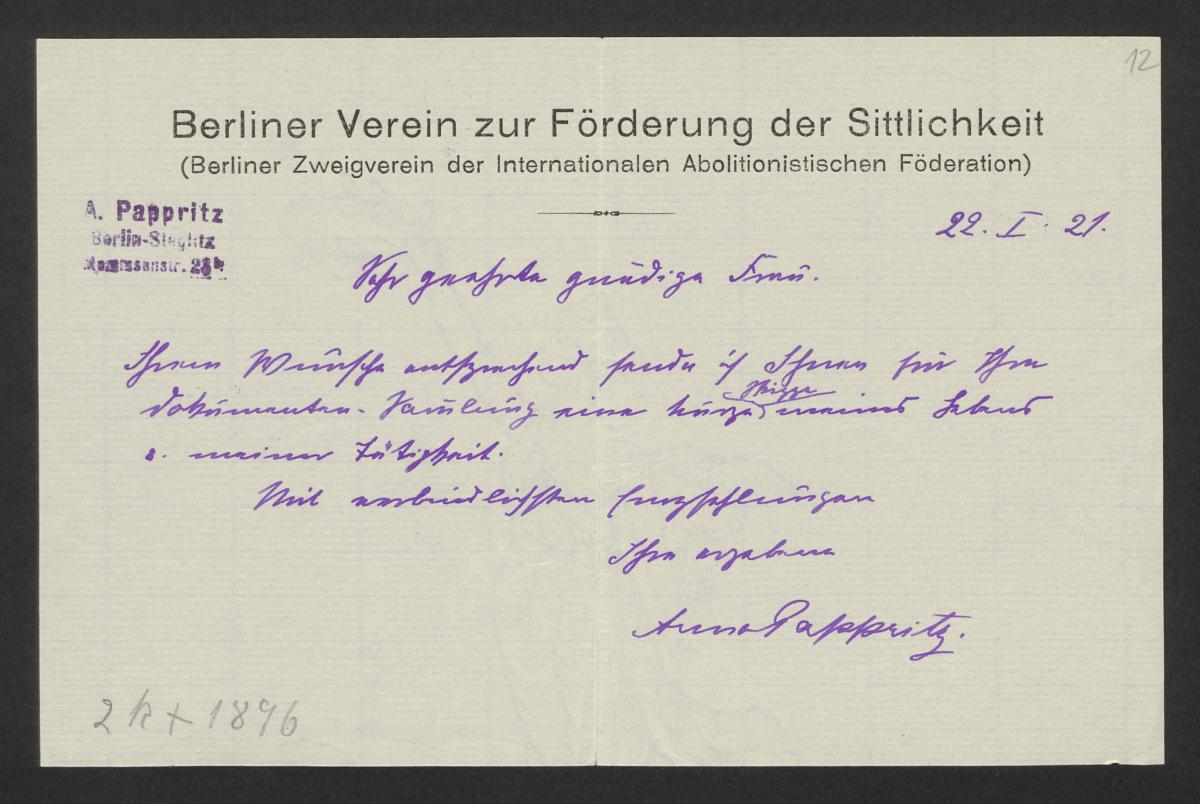 12
Berliner Verein zur Förderung der Sittlichkeit
(Berliner Zweigverein der Internationalen Abolitionistischen Föderation)
A. Pappritz
Berlin-Steglitz
22. I. 21.
Sehr geehrte gnädige Frau.
Ihrem Wunsche entsprechend sende ich Ihnen für Ihre
Dokumenten-Samlung eine kurze Skizze meines Lebens
u. meiner Tätigkeit.
Mit verbindlichsten Empfehlungen
Ihre ergebene
Anna Pappritz.
2 K + 1896